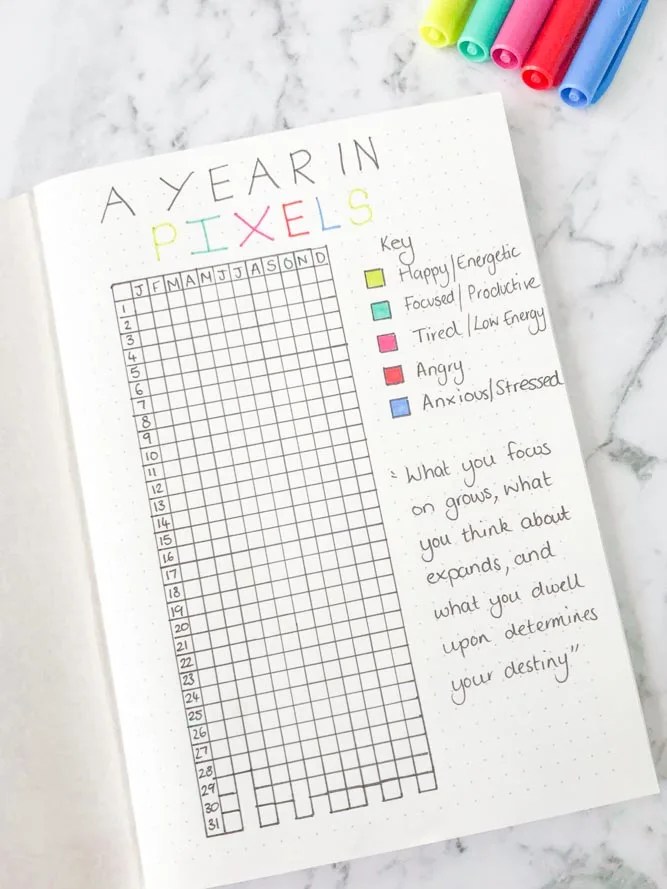 A YEAR IN
PIXELS
J F M A M J J A S O N D
1
2
3
4
5
6
7
8
9
10
11
12
13
14
15
16
17
18
19
20
21
22
23
24
25
26
27
28
29
30
31
Key
Happy/Energetic
Focused/Productive
Tired/Low Energy
Angry
Anxious/Stressed
"What you focus
on grows, what
you think about
expands, and
what you dwell
upon determines
your destiny"